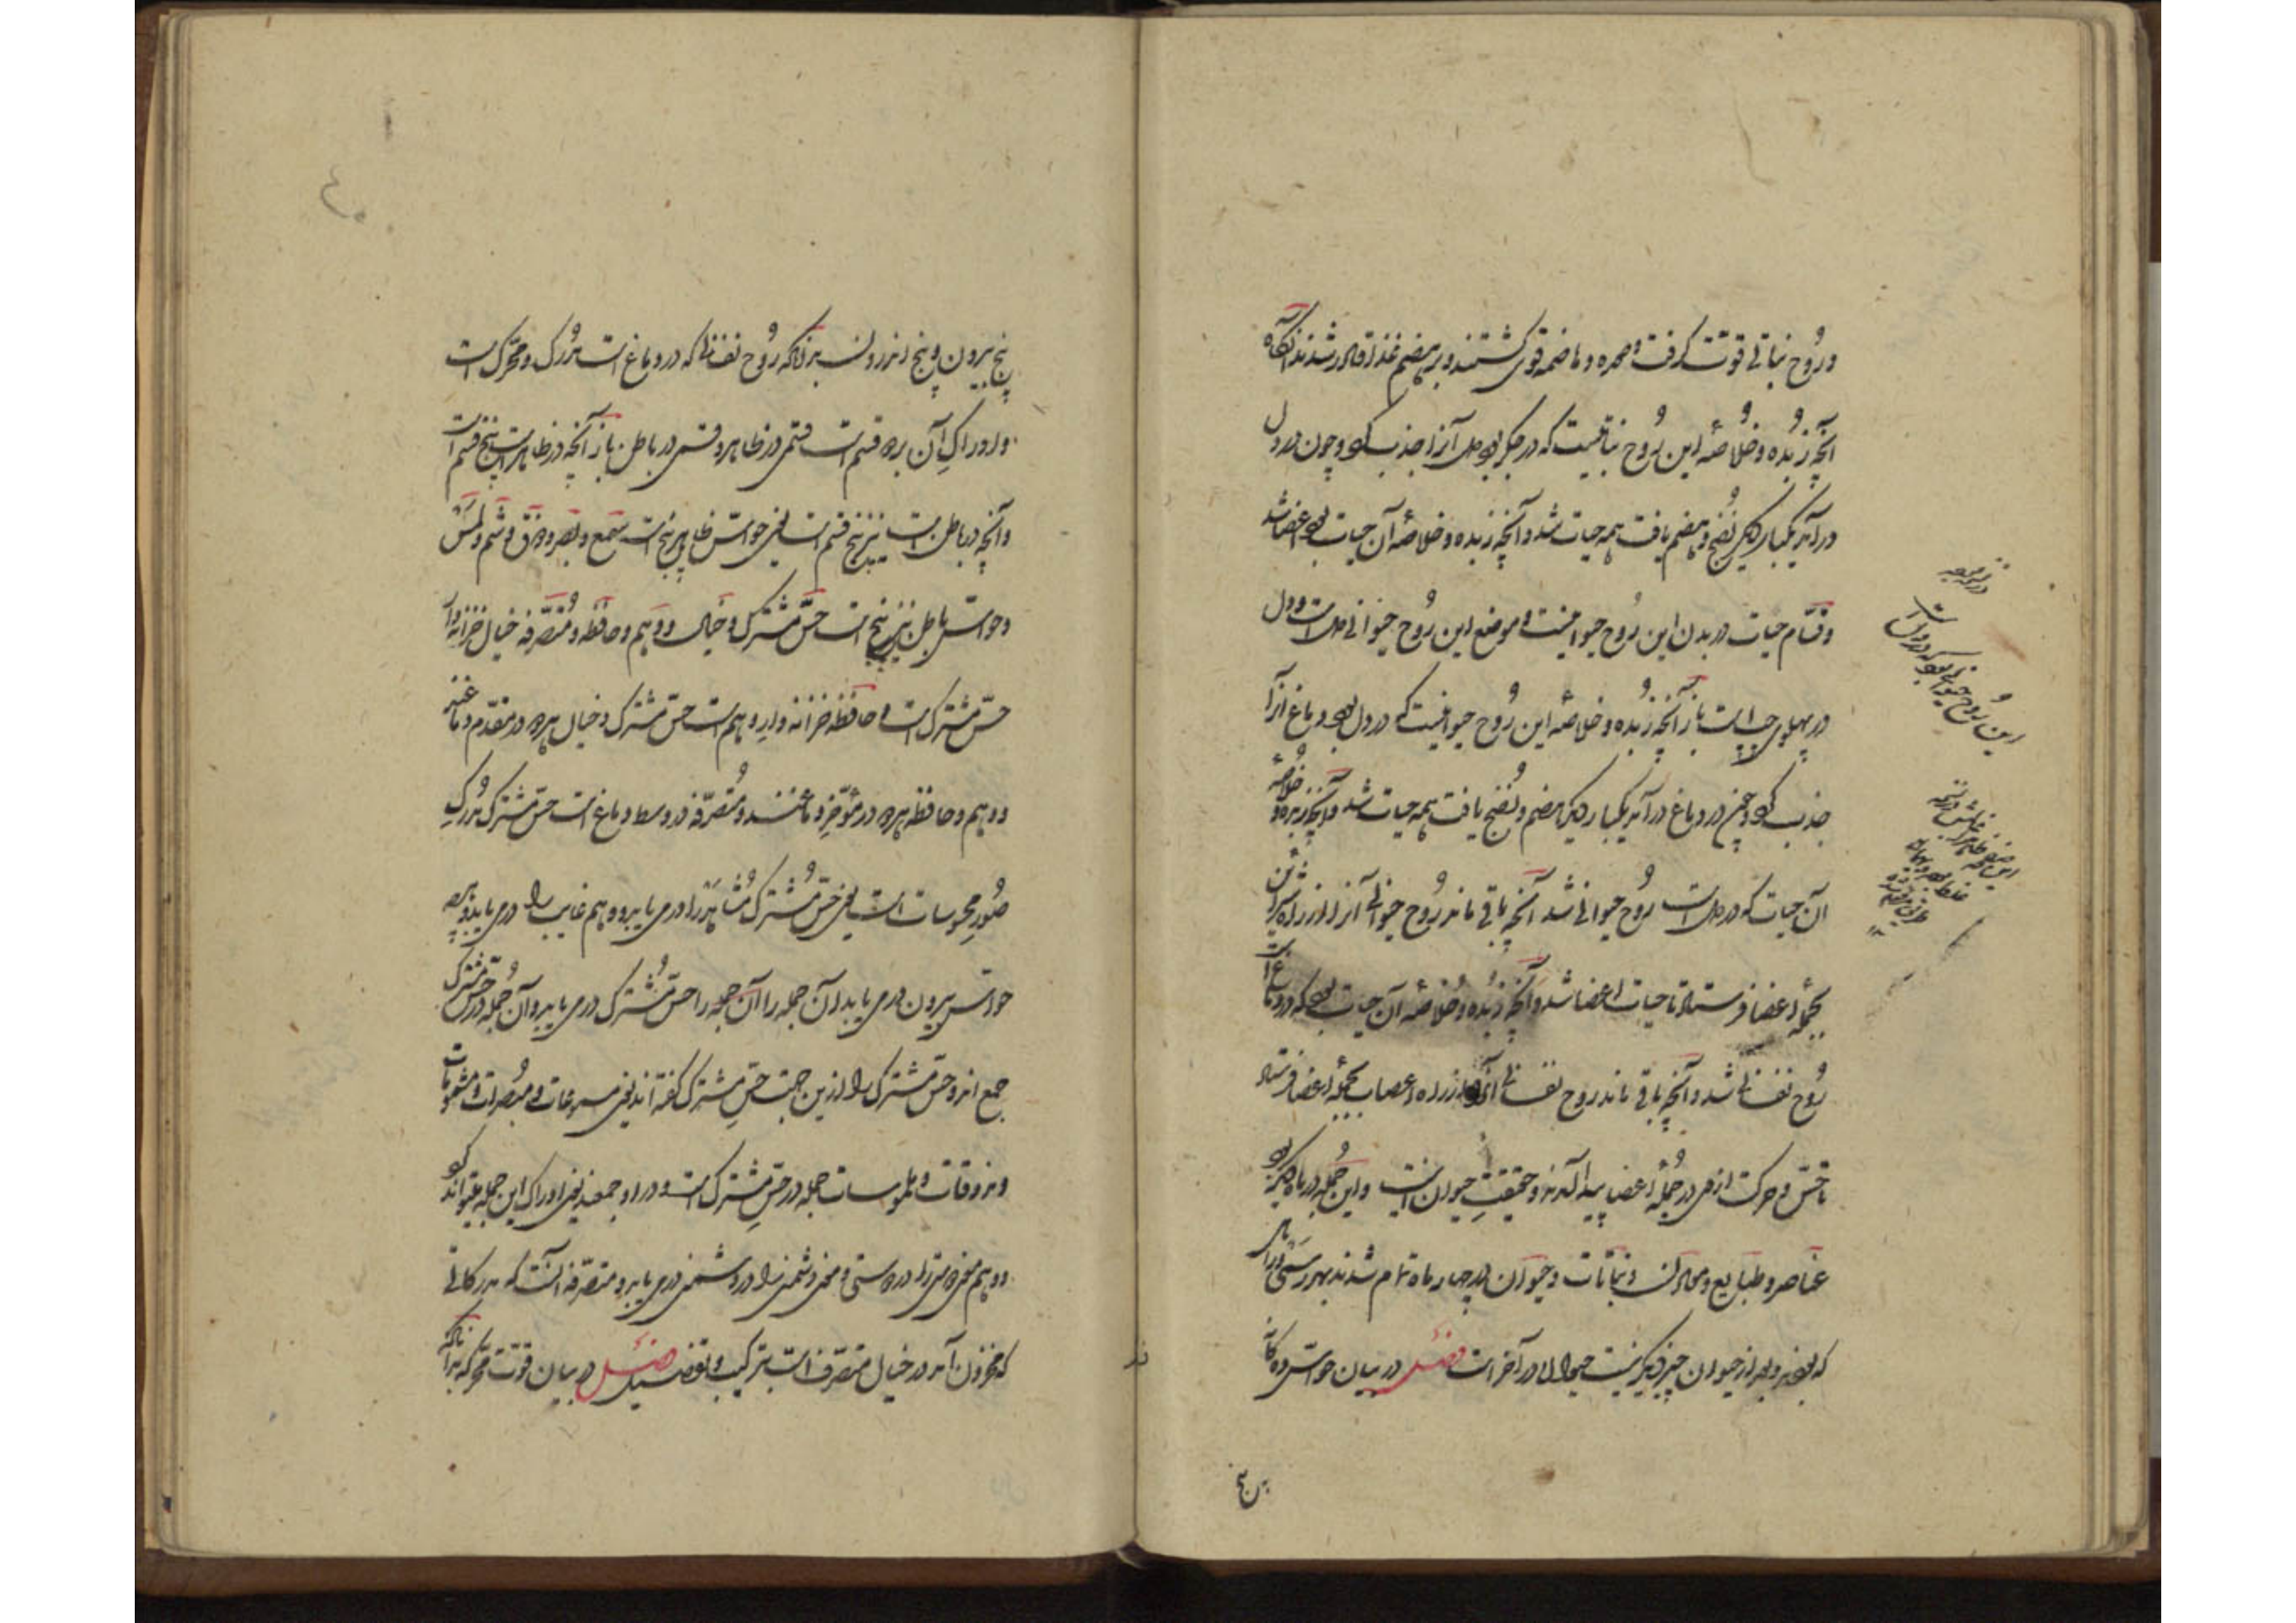 و رُوح نباتی قوّت گرفت و معده و هاضمه قوی گشتند و بر هضم غذا قادر شدند آنگاه
آنچه زُبده و خُلاصهٔ این رُوح نباتیست که در جگر بود دل آنرا جذب کرد و چون در دل
درآمد یکبار دیگر نُضج و هضم یافت همه حیات شد و آنچه زبده و خلاصهٔ آن حیات بود اعضا شد
و قسّام حیات در بدن این رُوح حیوانیست و موضع این رُوح حیوانی دل است و دل
در پهلوی چپ است باز آنچه زُبده و خلاصهٔ این رُوح حیوانیست که در دل بود دماغ آنرا
جذب کرد و چون در دماغ درآمد یکبار دیگر هضم و نُضج یافت همه حیات شد و آنچه زبده و خُلاصهٔ
آن حیات که در دل است رُوح حیوانی شد آنچه باقی ماند رُوح حیوانی آنرا از راه شرائین
بجملهٔ اعضا فرستاد تا حیات اعضا شد و آنچه زبده و خُلاصهٔ آن حیات بود که در دماغ است
رُوح نفسانی شد و آنچه باقی ماند روح نفسانی آنرا از راه اعصاب بجملهٔ اعضا فرستاد
تا حسّ و حرکت ارادی در جُملهٔ اعضا پیدا آمدند و حقیقتِ حیوان اینست و این جُمله در ماه دیگر بود
عناصر و طبایع و معادن و نباتات و حیوان در چهار ماه تمام شدند بهر یکی در ماهی
که بود و بعد از حیوان چیز دیگر نیست حیوان در آخر است فصل در بیان حواسّ ده‌گانه
این رُوح حیوانی بود که در دل است
پنج
پنج بیرون و پنج اندرون بدانکه رُوح نفسانی که در دماغ است مُدرک و محرّک است
و ادراکِ آن بر دو قسم است قسمی در ظاهر و قسمی در باطن باز آنچه در ظاهر است پنج قسم است
و آنچه در باطن است نیز پنج قسم است یعنی حواسّ ظاهر پنج است سَمع و بصر و ذوق و شم و لمس
و حواسّ باطن نیز پنج است حسّ مشترک و خیال و وهم و حافظه و مُتصرّفه خیال خزانه‌دار
حسّ مشترک است و حافظه خزانه‌دار وهم است حسّ مشترک و خیال هر دو در مقدّم دماغند
و وهم و حافظه هر دو در مُؤخّر دماغند و مُتصرّفه در وسط دماغ است حسّ مشترک مُدرکِ
صُورِ محسوسات است یعنی حسّ مُشترک مُشاهَد را درمی‌یابد و وهم غایب را درمی‌یابد هرچه
حواسّ بیرون درمی‌یابد آن جمله را آن جمله را حسّ مُشترک درمی‌یابد و آن جُمله در حسّ مشترک
جمع‌اند و حسّ مشترک را ازین جهت حسّ مشترک گفته‌اند یعنی مسموعات و مُبصرات و مشمومات
و مذوقات و ملموسات جمله در حسّ مشترک است و در او جمعند یعنی ادراک این جمله میتواند کرد
و وهم معنی دوستی را در دوست و معنی دشمنی را در دشمن درمی‌یابد و متصرّفه آنست که مدرکاتی
که مخزون‌اند در خیال متصرّف است بترکیب و تفصیل فصل در بیان قوّت محرّکه بدانکه